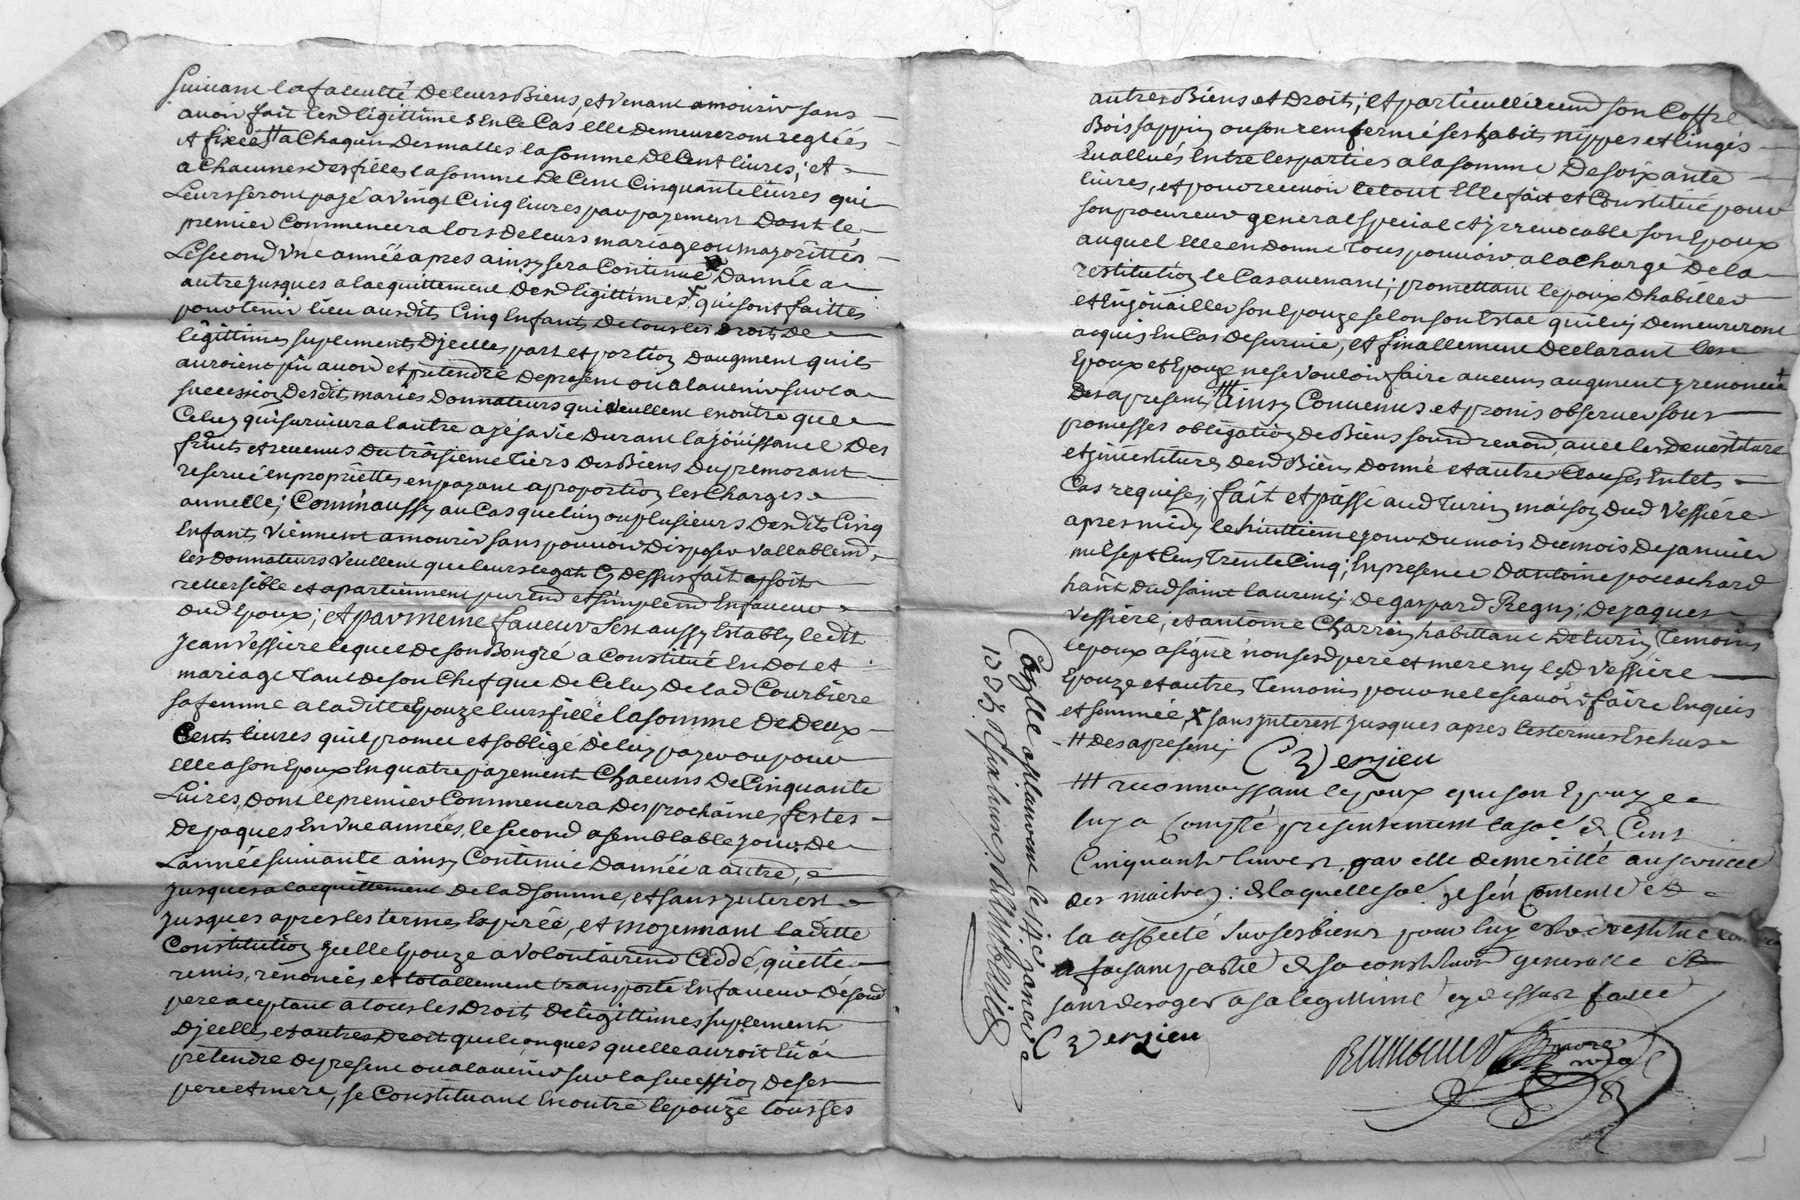 suivant la faculté de leurs Biens, et venant a mourir sans
avoir fait lesd légittimes en ce cas elle demeureront regléés
et fixéés # a chaqun des malles la somme de Cent livres; et
a chacunes des filles la somme de Cent Cinquante livres qui
leurs seront payé a vingt Cinq livres par payement dont le
premier Commencera lors de leurs mariage ou majorittés
le second une année apres ainsy sera Continué d'année a
autre jusques a lacquittement desd légittimes X qui sont faittes
pour tenir lieu ausdits Cinq Enfants de tous les Droits de
légittimes suplements djcelles part et portion daugment quils
auroient pû avoir et prétendre de présent ou a lavenir sur la
succession desdits mariés donnateurs qui veullent en outre que
Celuy qui survivra lautre aye sa vie durant la joüissance des
fruits et revenus du troisieme tiers des Biens du premorant
reservé en propriettés en payant a proportion les Charges
annelle; Comm'aussy au Cas que luy ou plusieurs desdits Cinq
Enfants viennent a mourir sans pouvoir disposer vallablemd
les donnateurs veullent que leurs legats Cy dessus fait a soit
reversible et apartiennent puremd et simplemd En faveur
dud Epoux; et par meme faveur sest aussy Estably ledit
jean Vessiere lequel de son Bongré a Constitué En dot et
mariage tant de son Chef que de Celuy de lad Courbiere
sa femme a laditte Epouze leurs fille la somme de Deux
Cents livres quil promet et soblige de luy payer ou pour
elle a son Epoux En quatre payement Chacuns de Cinquante
Livres, dont le premier Commencera des prochaines festes
de paques En une années, le second a semblable jour de
L'année suivante ainsy Continué d'année a autre,
jusques a lacquittement de lad somme, et sans jnterest
jusques apres les termes Expirée, et moyennant laditte
Constitution jcelle Epouze a volontairemd Ceddé, quitté
remis, renoncés et totallement transporté En faveur de sond
pere aceptant a tous les Droits de légittimes suplements
djcelles et autres Droit quelconques quelle auroit Eû a
prétendre de present ou a lavenir sur la succession de ses
pere et mere, se Constituant En outre lepouze tous ses
autres Biens et Droits; et particullieremd son Coffre
Bois sappin ou son remfermé ses habits nippes et linges
Evallués Entre les parties a la somme de soixante
livres, et pour recevoir le tout Elle fait et Constitué pour
son procureur general special et jrrevocable son Epoux
auquel Elle en donne tous pouvoir a la charge de la
restitution le Cas avenant; promettant lepoux d'habiller
et Enjouailler son Epouze selon son Estat qui luy demeureront
acquis En Cas de survie, et finallement Declarant les
Epoux et Epouze ne se vouloir faire aucuns augment y renoncent
des a present; ### ainsy Convenus et promis observer sous
promesses obligation de Biens soumd renond, avec les devestiture
et jnvestitures desd Biens donné et autres Clauses En tels
Cas requises; fait et passé aud Turin maison dud Vessiere
apres midy le huittieme jour du mois du mois de janvier
mil sept Cens Trente Cinq; En presence d'antoine
hant dud saint laurens; de gaspard Regny; de jaques
Vessiere, et antoine Charrein habittant de turin Temoins
lepoux a signé non sesd pere et mere ny led Vessiere
Epouze et autres Temoins pour ne le scavoir faire Enquis
et sommée X sans jnterest jusques apres les termes Eschus
# des a present;
C Verzieu
### reconnoissant lepoux que son Epouze
luy a Compté présentement la soe de Cent
Cinquante livres par elle demerité au service
des maitres: de laquelle soe je s'en contente et
la assecté sur ses biens pour luy estre restitué
faisant partie de sa constitution generalle et
sans deroger a sa legittime cy dessus faitte
C Verzieu